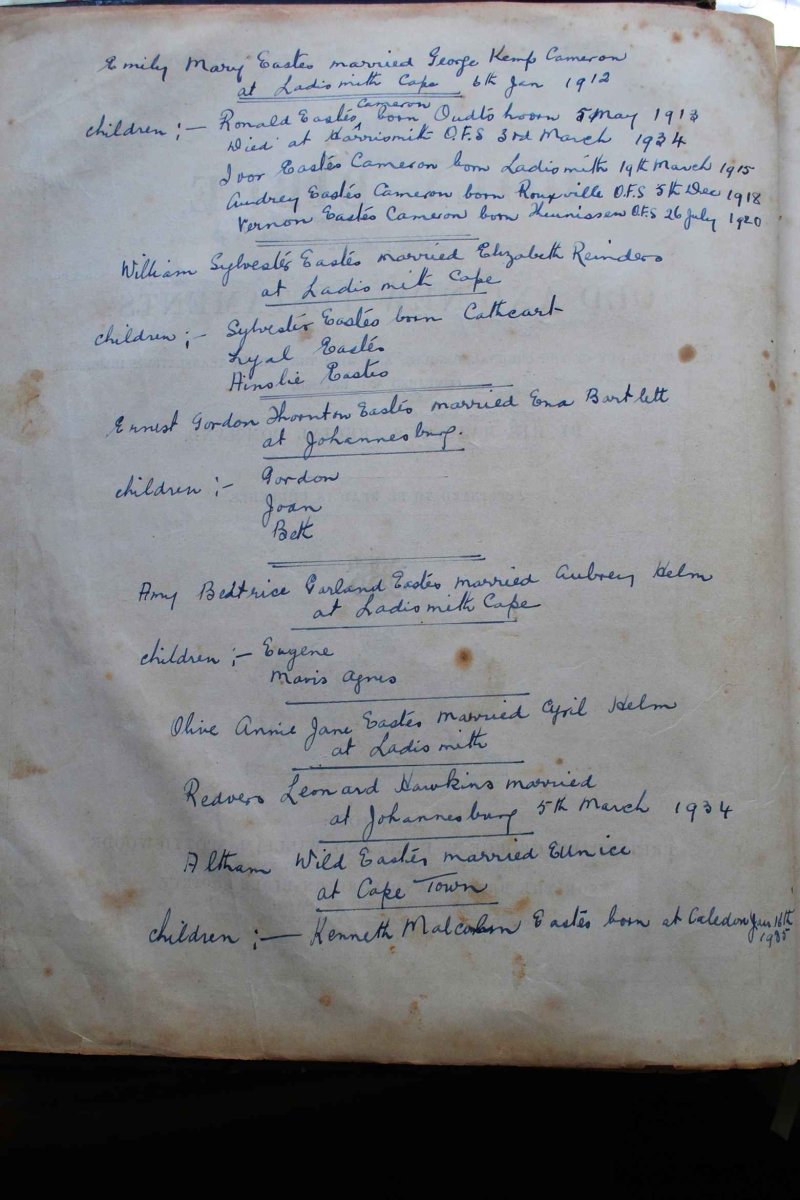 Emily Mary Eastes married George Kemp Cameron
at Ladismith Cape 6th Jan 1912
children ;— Ronald Eastes Cameron born Oudtshoorn 5 May 1913
Died at Harrismith O.F.S 3rd March 1934
Ivor Eastes Cameron born Ladismith 19th March 1915
Audrey Eastes Cameron born Rouxville O.F.S 5th Dec 1918
Vernon Eastes Cameron born Theunissen O.F.S 26 July 1920
William Sylvester Eastes married Elizabeth Reinders
at Ladismith Cape
children ;— Sylvester Eastes born Cathcart
Lyal Eastes
Ainslie Eastes
Ernest Gordon Thornton Eastes married Ena Bartlett
at Johannesburg.
children ;— Gordon
Joan
Beth
Amy Beatrice Garland Eastes married Aubrey Helm
at Ladismith Cape
children ;— Eugene
Maris Agnes
Olive Annie Jane Eastes married Cyril Helm
at Ladismith
Redvers Leonard Hawkins married
at Johannesburg 5th March 1934
Altham Wild Eastes married Eunice
at Cape Town
children ;— Kenneth Malcolm Eastes born at Caledon Jan 16th
1935